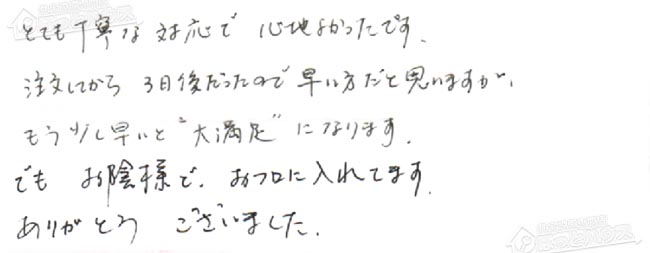 とても丁寧な対応で 心地よかったです.
注文してから 3日後だったので早い方だと思いますが、
もう少し早いと"大満足"になります.
でも お陰様で、おフロに入れてます.
ありがとう ございました.